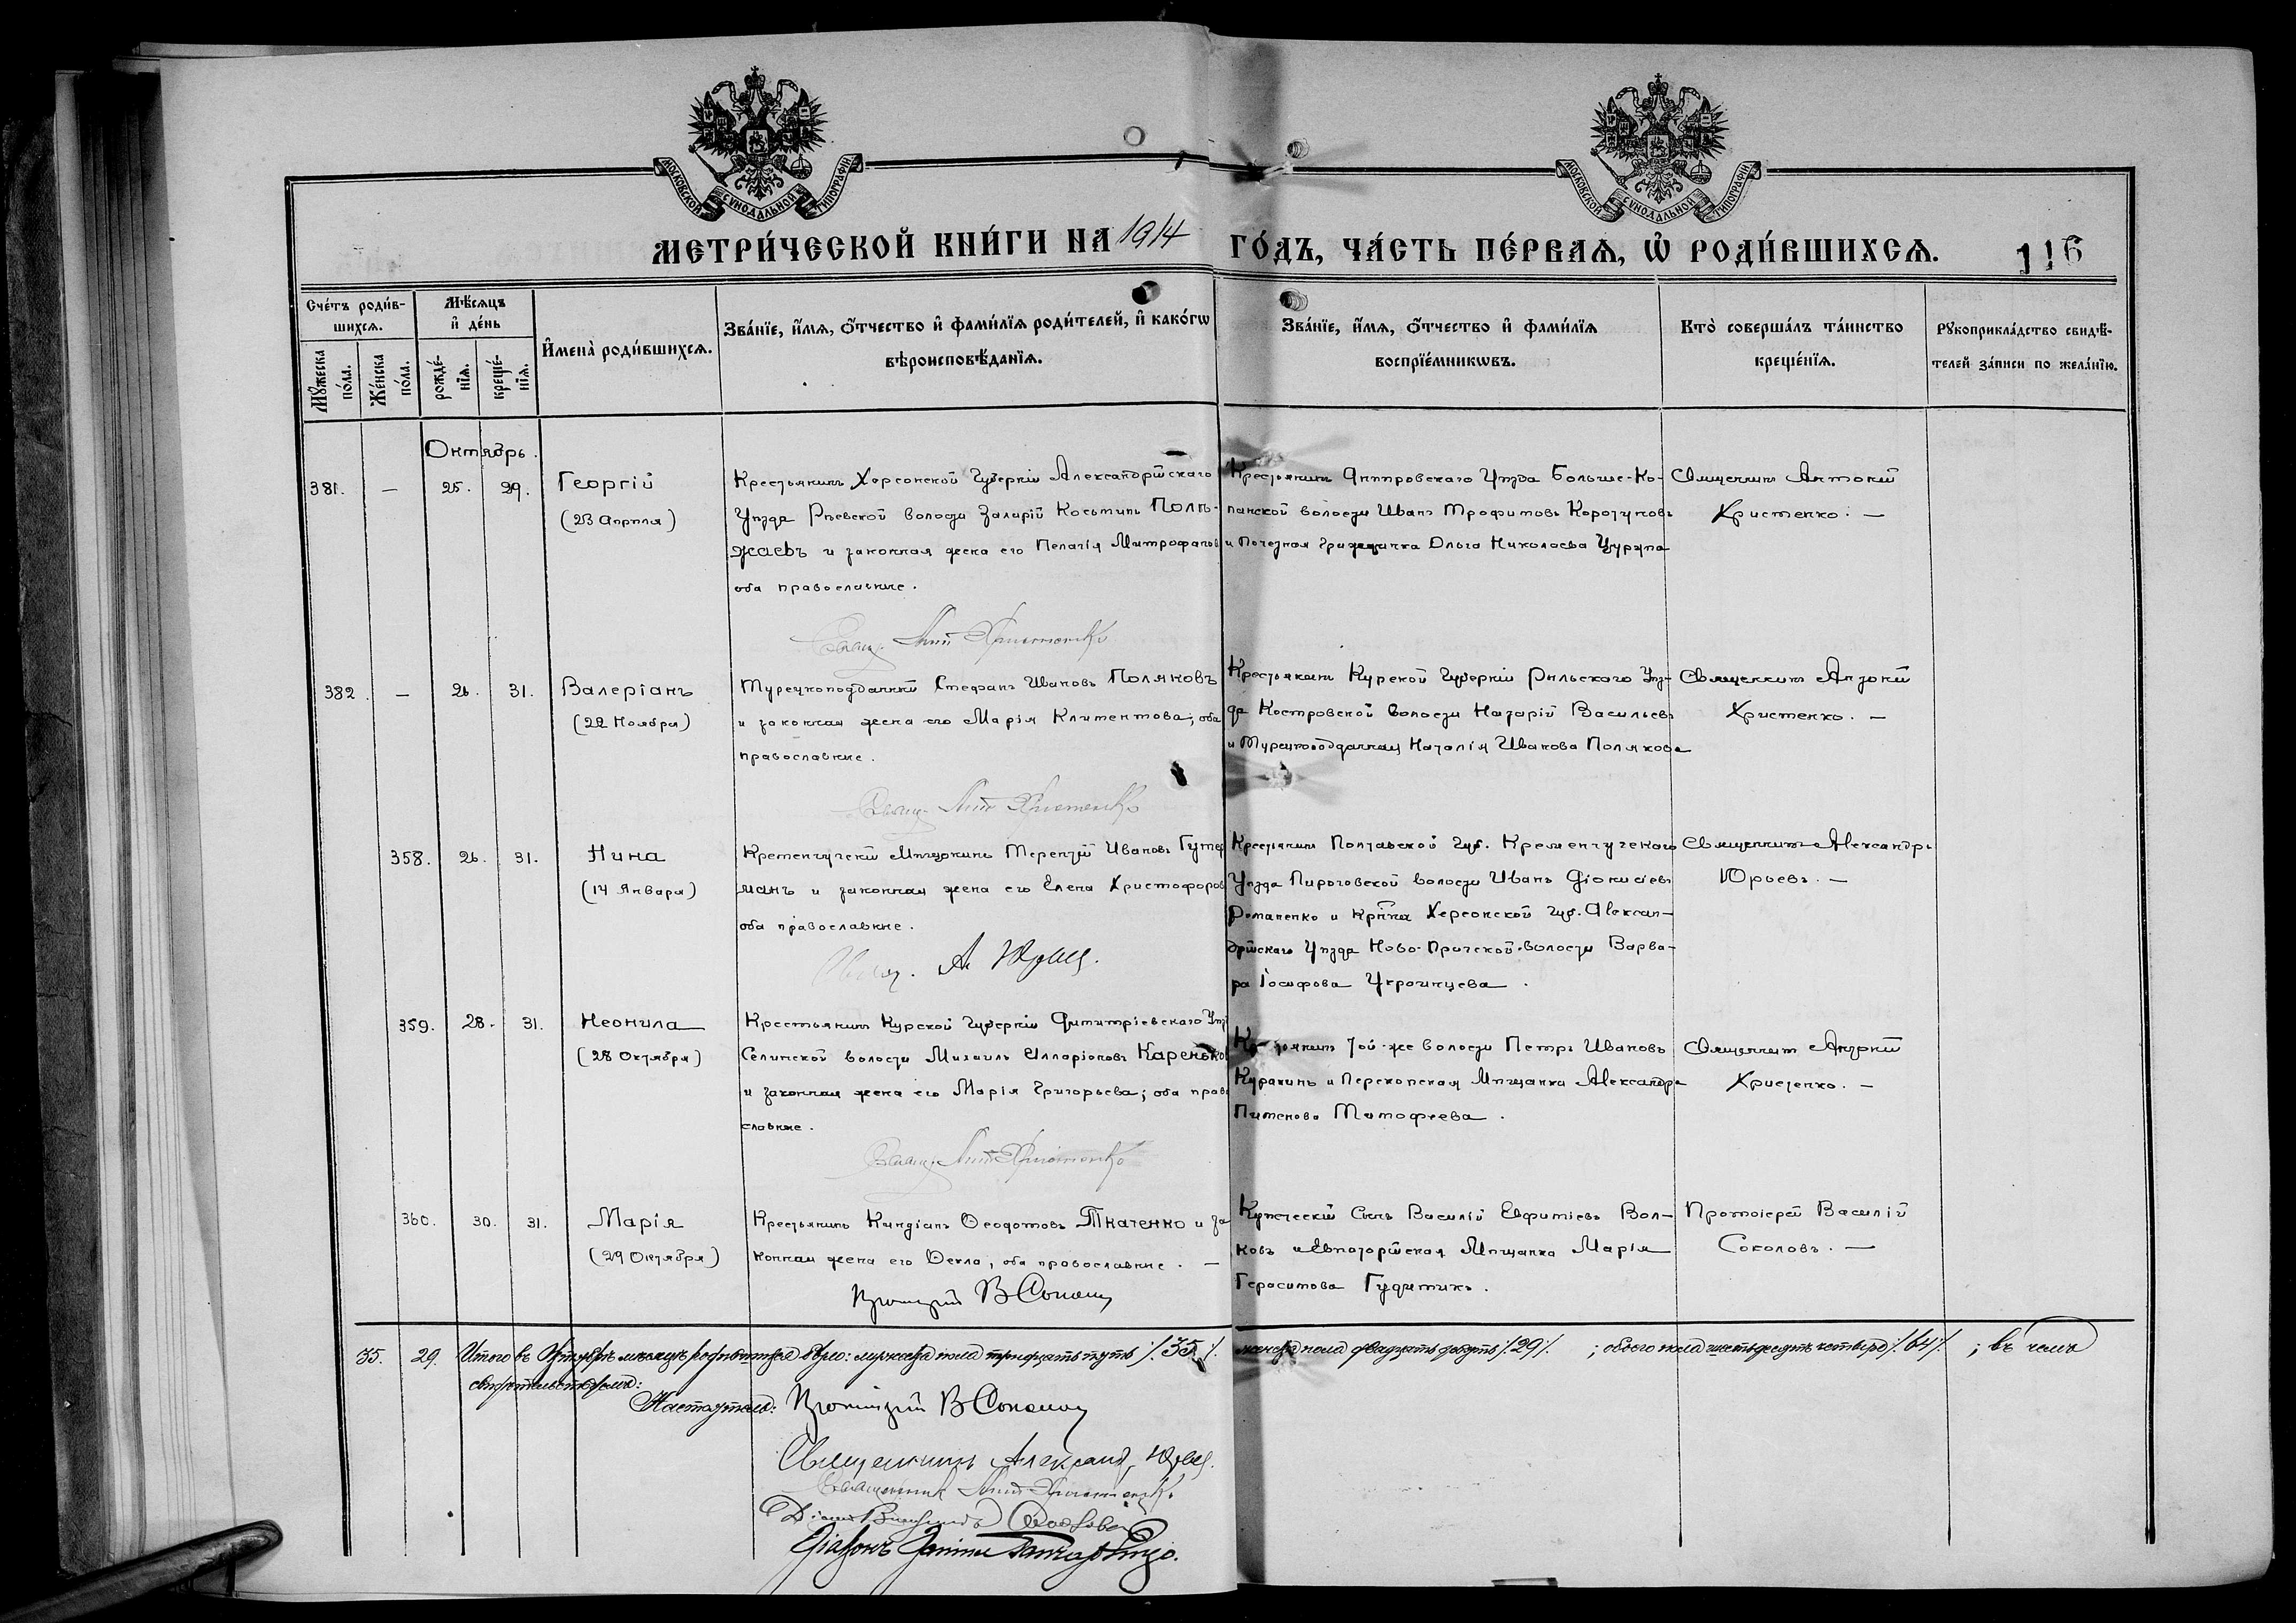 МОСКОВСКОЙ СѴНОДАЛЬНОЙ ТИПОГРАФІИ
МОСКОВСКОЙ СѴНОДАЛЬНОЙ ТИПОГРАФІИ
МЕТРИ́ЧЕСКОЙ КНИ́ГИ НА 1914 ГО́ДЪ, ЧА́СТЬ ПЕ́РВАѦ, Ѡ҆ РОДИ́ВШИХСѦ.
116
Сче́тъ роди́в-
шихсѧ.
Мꙋ́жеска
по́ла.
Же́нска
по́ла.
Мѣ́сѧцъ
и҆ де́нь
рожде́-
нїѧ.
креще́-
нїѧ.
И҆мена̀ роди́вшихсѧ.
Зва́нїе, и҆́мѧ, ѻ҆́тчество и҆ фами́лїѧ роди́телей, и҆ како́гѡ
вѣроисповѣ́данїѧ.
Зва́нїе, и҆́мѧ, ѻ҆́тчество и҆ фами́лїѧ
воспрїе́мникѡвъ.
Кто̀ соверша́лъ та́инство
креще́нїѧ.
Рꙋкоприкла́дство свидѣ́-
телей за́писи по жела́нїю.
Октябрь.
381. — 25. 29. Георгій
(23 Апрѣля)
Крестьянинъ Херсонской Губерніи Александрійскаго
Уѣзда волости Косьминъ Полѣ-
жаевъ и законная жена его Пелагія Митрофанов
оба православные.
Свящ. Ант. Христенко
Крестьянинъ Днѣпровскаго Уѣзда Больше-Ко-
панской волости Иванъ Трофимовъ Коротуновъ
и Почетная гражданка Ольга Николаева Цурупа
Священникъ Антоній
Христенко. —
382. — 26. 31. Валеріанъ
(22 Ноября)
Турецкоподданный Стефанъ Ивановъ Поляковъ
и законная жена его Марія Климентова; оба
православные.
Свящ. Ант. Христенко
Крестьянинъ Курской Губерніи Рыльскаго Уѣз-
да Костровской волости Назарій Васильевъ
и Турецкоподданная Наталія Иванова Полякова
Священникъ Антоній
Христенко. —
358. 26. 31. Нина
(14 Января)
Кременчугскій Мѣщанинъ Терентій Ивановъ Гутер
манъ и законная жена его Елена Христофоров
оба православные.
Свящ. А. Юрьев.
Крестьянинъ Полтавской Губ. Кременчугскаго
Уѣзда Пироговской волости Иванъ Діонисіевъ
Романенко и Кр-нка Херсонской Губ. Алексан-
дрійскаго Уѣзда Ново-Прагской волости Варва-
ра Іосифова Украинцева.
Священникъ Александръ
Юрьевъ. —
359. 28. 31. Неонила
(28 Октября)
Крестьянинъ Курской Губерніи Димитріевскаго Уѣз
Селинской волости Михаилъ Илларіоновъ Каренько
и законная жена его Марія Григорьева; оба право
славные.
Свящ. Ант. Христенко
той-же волости Петръ Ивановъ
Куракинъ и Перекопская Мѣщанка Александра
Пименова Тимофеева.
Священникъ Антоній
Христенко. —
360. 30. 31. Марія
(29 Октября)
Крестьянинъ Киндіанъ Ѳеодотовъ Ткаченко и за
конная жена его Ѳекла, оба православные. —
Протоіерей В Соколов
Купеческій Сынъ Василій Евфиміевъ Вол-
ковъ и Евпаторійская Мѣщанка Марія
Герасимова Гудимикъ.
Протоіерей Василій
Соколовъ. —
35. 29. Итого въ Октябрѣ мѣсяцѣ родившихся было: мужеска пола тридцать пять /.35./. женска пола двадцать девять /.29./. ; обоего пола шестьдесятъ четыре /.64./. ; въ чемъ
свидѣтельствуемъ:
Настоятель: Протоіерей В Соколов
Священникъ Александ. Юрьев.
Священникъ Ант. Христенко
Діаконъ